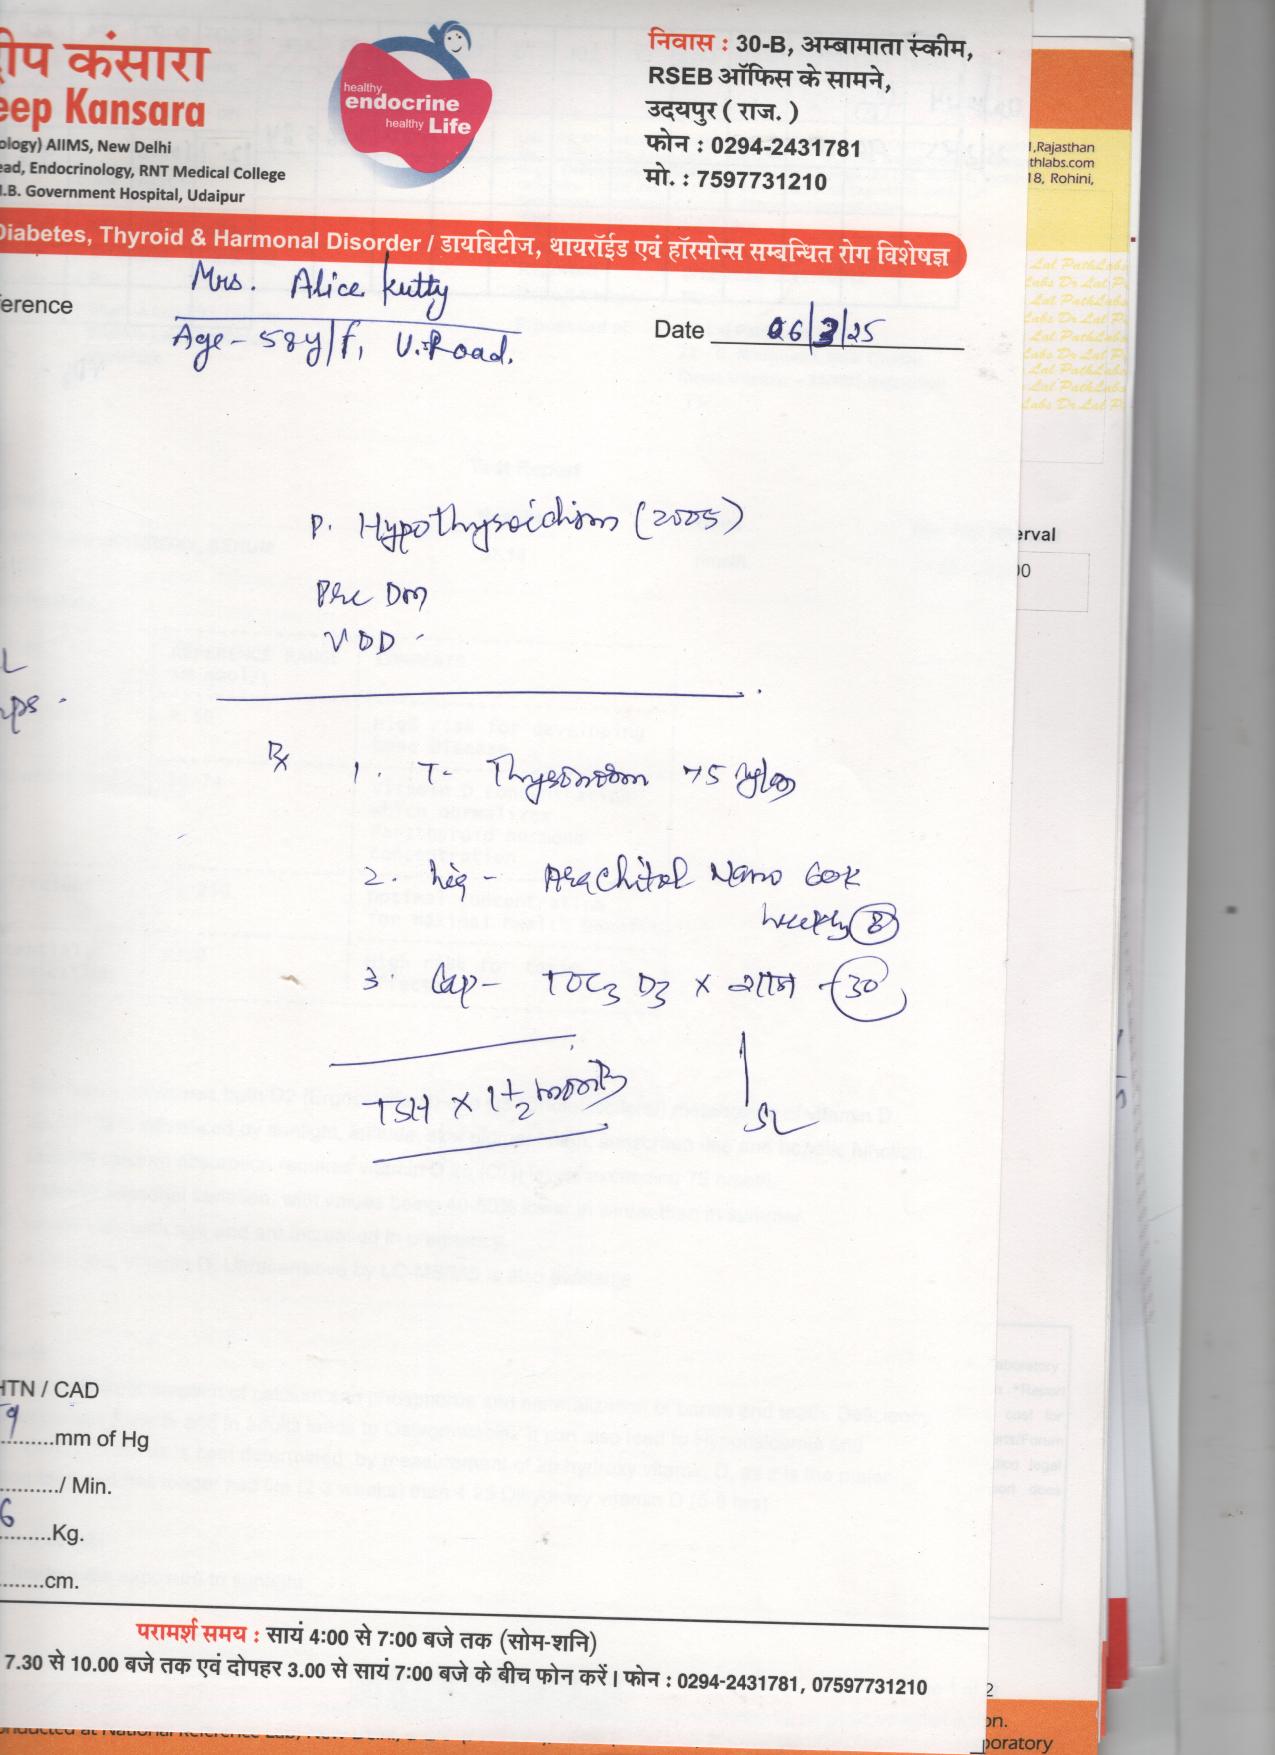 दीप कंसारा
eep Kansara
ology) AIIMS, New Delhi
ead, Endocrinology, RNT Medical College
.B. Government Hospital, Udaipur
healthy
endocrine
healthy Life
निवास : 30-B, अम्बामाता स्कीम,
RSEB ऑफिस के सामने,
उदयपुर ( राज. )
फोन : 0294-2431781
मो. : 7597731210
Diabetes, Thyroid & Harmonal Disorder / डायबिटीज, थायरॉईड एवं हॉरमोन्स सम्बन्धित रोग विशेषज्ञ
,Rajasthan
thlabs.com
18, Rohini,
Mrs. Alice Kutty
erence
Age - 58y/F, U.Road.
Date 06/3/25
P. Hypothyroidism (2005)
Pre DM
VDD
erval
00
Rx 1. T- Thyronorm 75
2. Liq - Arachitol Nano 60K
weekly 8
3. Cap - TOC3 D3 x शाम - 30
TSH x 1 1/2 month
HTN / CAD
mm of Hg
/ Min.
6 Kg.
cm.
परामर्श समय : सायं 4:00 से 7:00 बजे तक (सोम-शनि)
7.30 से 10.00 बजे तक एवं दोपहर 3.00 से सायं 7:00 बजे के बीच फोन करें। फोन : 0294-2431781, 07597731210
2
on.
boratory